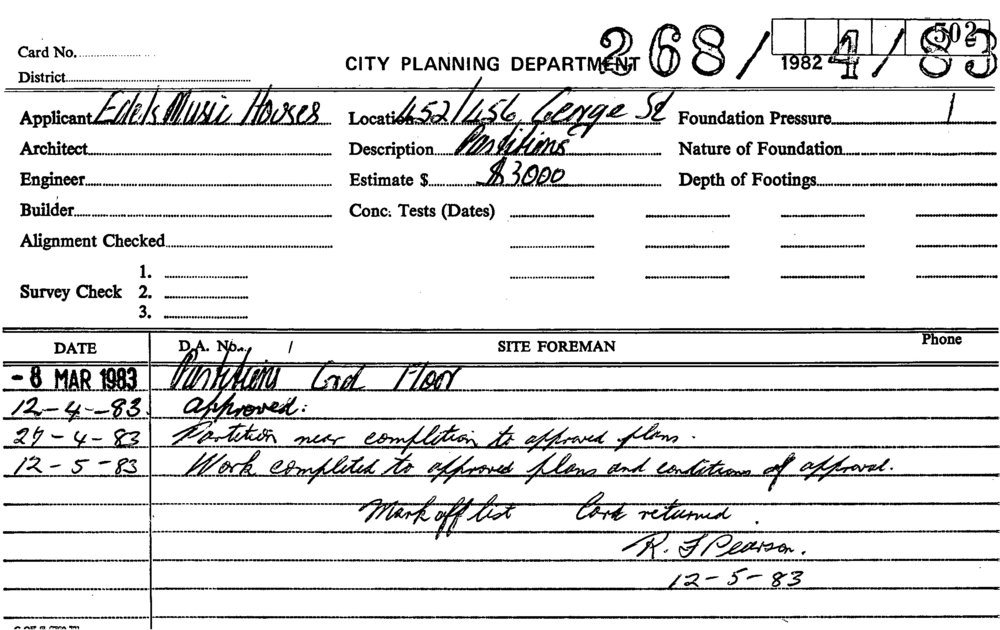 502
268/4/83
Card No.
CITY PLANNING DEPARTMENT 1982
District
Applicant Edels Music Houses Location 452/456, George St Foundation Pressure
Architect Description Partitions Nature of Foundation
Engineer Estimate $ $3000 Depth of Footings
Builder Conc. Tests (Dates)
Alignment Checked
1.
Survey Check 2.
3.
DATE D.A. No. / SITE FOREMAN Phone
- 8 MAR 1983 Partitions Grd Floor
12-4-83 approved:
27-4-83 Partition near completion to approved plans.
12-5-83 Work completed to approved plans and conditions of approval.
Mark off list Card returned.
R. F Pearson.
12-5-83